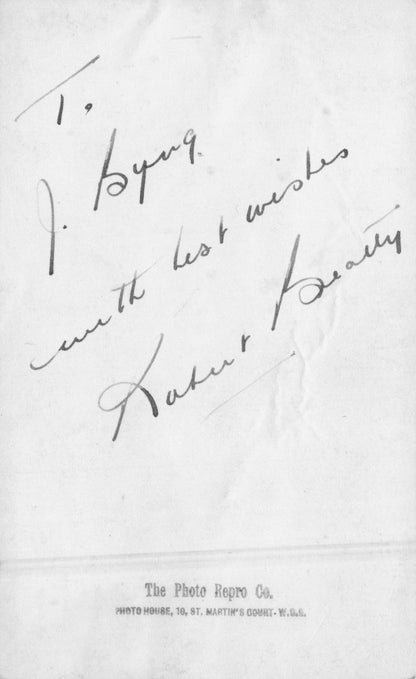 T.
J. Byng.
with best wishes
Robert Beatty
The Photo Repro Co.
PHOTO HOUSE, 10, ST. MARTIN'S COURT - W.C.2.